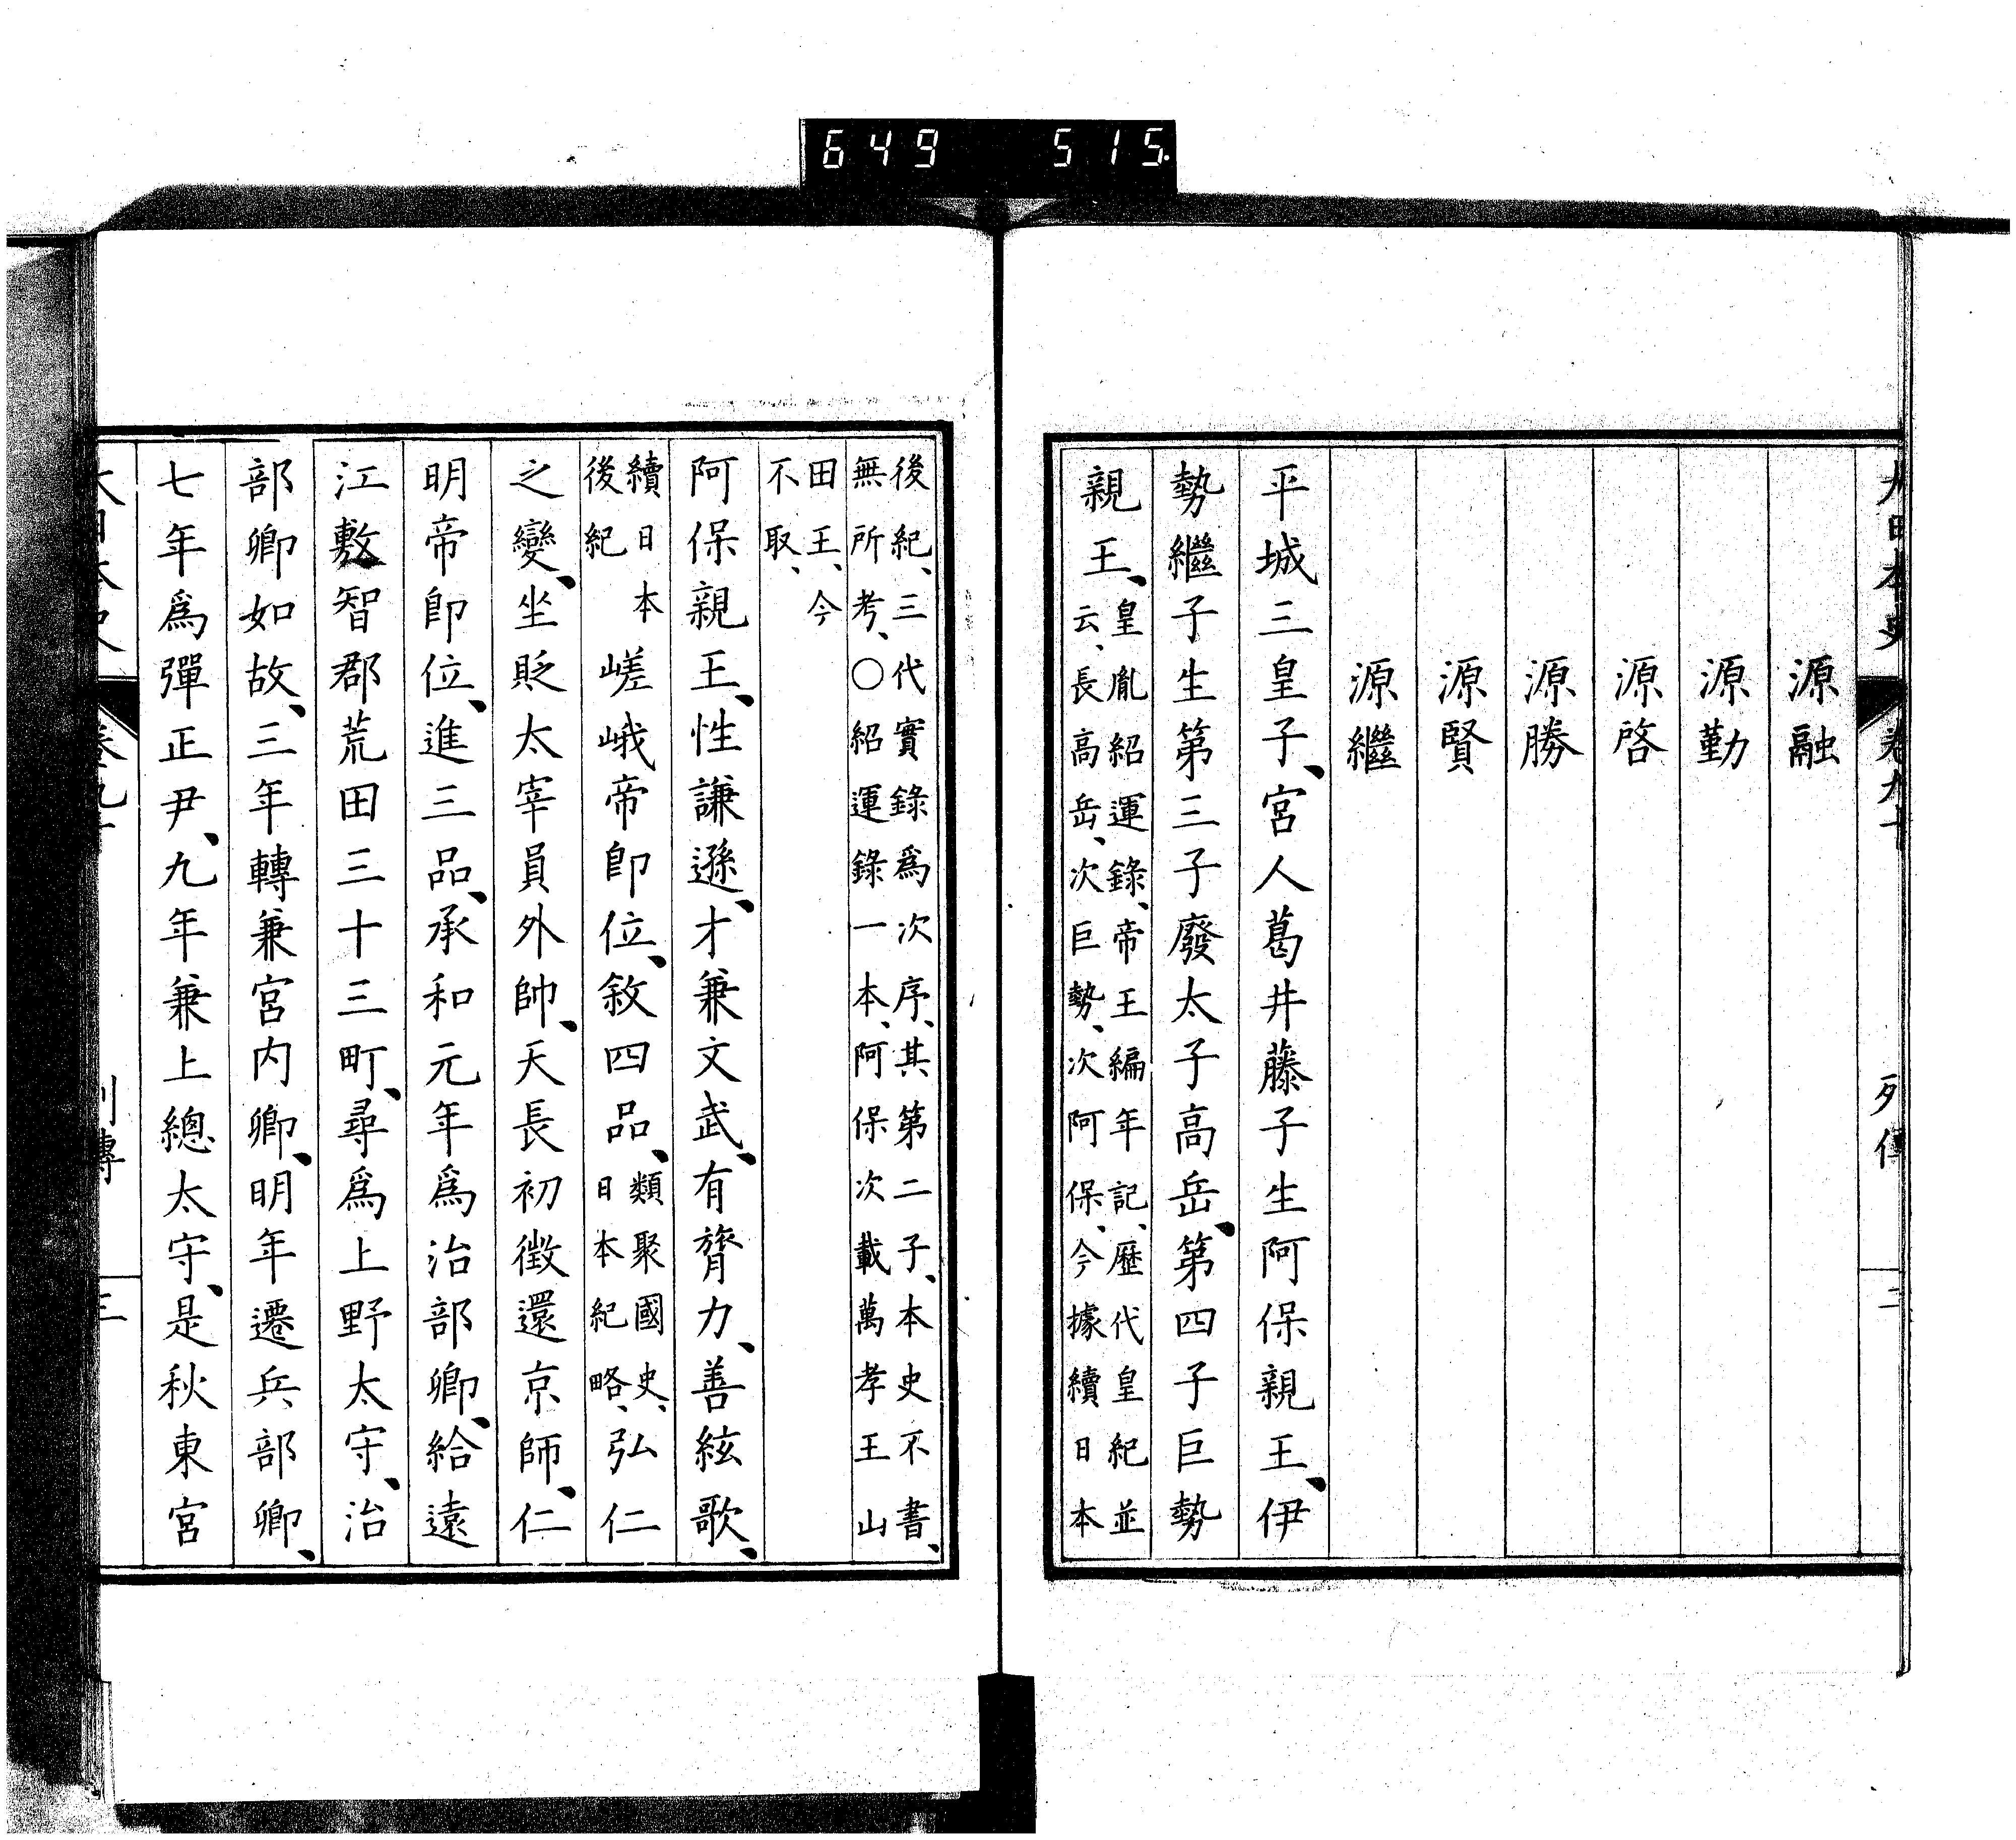 649 515.
源融
源勤
源啓
源勝
源賢
源繼
平城三皇子、宮人葛井藤子生阿保親王、伊
勢繼子生第三子廢太子高岳、第四子巨勢
親王、皇胤紹運錄、帝王編年記、歷代皇紀並
云、長高岳、次巨勢、次阿保、今據續日本
後紀、三代實錄爲次序、其第二子、本史不書、
無所考、○紹運錄一本、阿保次載萬孝王山
田王、今
不取、
阿保親王、性謙遜、才兼文武、有膂力、善絃歌、
續日本
後紀嵯峨帝卽位、敘四品、類聚國史、
日本紀略、弘仁
之變、坐貶太宰員外帥、天長初徵還京師、仁
明帝卽位、進三品、承和元年爲治部卿、給遠
江敷智郡荒田三十三町、尋爲上野太守、治
部卿如故、三年轉兼宮内卿、明年遷兵部卿、
七年爲彈正尹、九年兼上總太守、是秋東宮